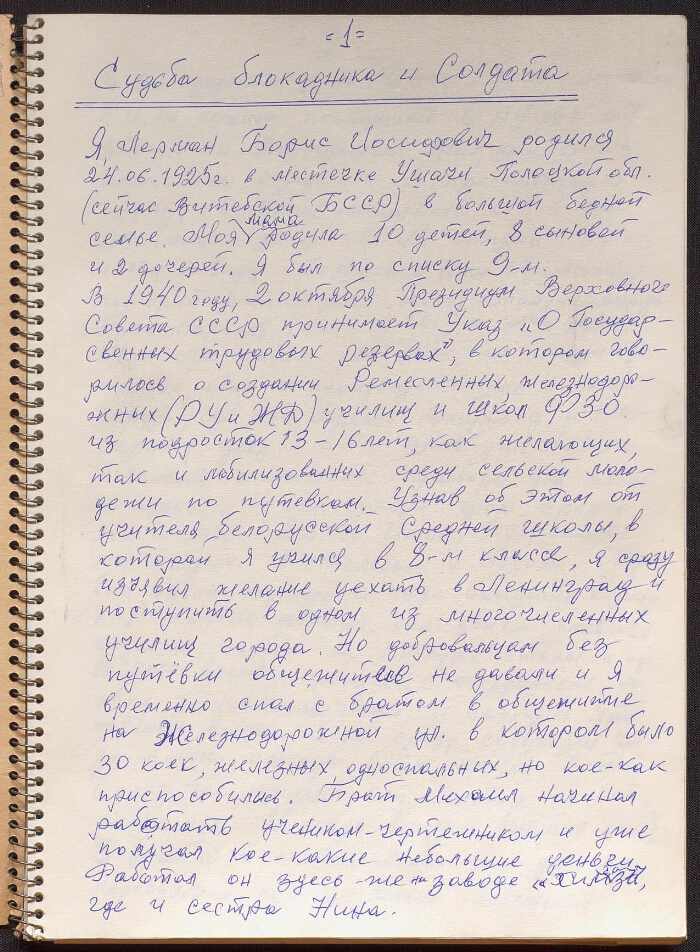 =1=
Судьба блокадника и Солдата
Я, Лерман Борис Иосифович родился
24.06.1925г. в местечке Ушачи Полоцкой обл.
(сейчас Витебской БССР) в большой бедной
семье. Моя мама родила 10 детей, 8 сыновей
и 2 дочерей. Я был по списку 9-м.
В 1940 году, 2 октября Президиум Верховного
Совета СССР принимает Указ „О Государ-
свенных трудовых резервах", в котором гово-
рилось о создании Ремесленных, железнодоро-
жных (РУ и ЖД) училищ и школ ФЗО.
из подросток 13-16 лет, как желающих,
так и мобилизованних среди сельской моло-
дежи по путевкам. Узнав об этом от
учителя, белорусской средней школы, в
которай я учился в 8-м классе, я сразу
изъявил желание уехать в Ленинград и
поступить в одном из многочисленных
училищ города. Но добровальцам без
путёвки общежитев не давали и я
временно спал с братом в общежитие
на Железнодорожной ул. в котором было
30 коек, железных, односпальных, но кое-как
приспособились. Брат Михаил начинал
работать учеником-чертежником и уже
получал кое-какие небольшие деньги.
Работал он здесь-же на заводе
где и сестра Нина.